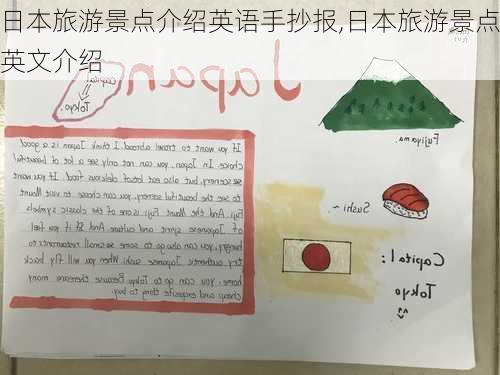 日本旅游景点介绍英语手抄报,日本旅游景点
英文介绍
Japan
capital:
Tokyo.
Fujiyama.
If you want to travel abroad. I think Japan is a good
choice. In Japan, you can not only see a lot of beautiful
scenery, but also eat lot of delicious food. If you want
to see the beautiful scenery, you can choose to visit Mount
Fuji. And the Mount Fuji is one of the classic symbols
of Japanese spirit and culture. And If if you feel
hungry, you can also go to some small restaurants to
try authentic Japanese sushi. When you will fly back
home, you can go to Tokyo. Because there are many
cheap and exquisite thing to buy.
Sushi~
Capital:
Tokyo